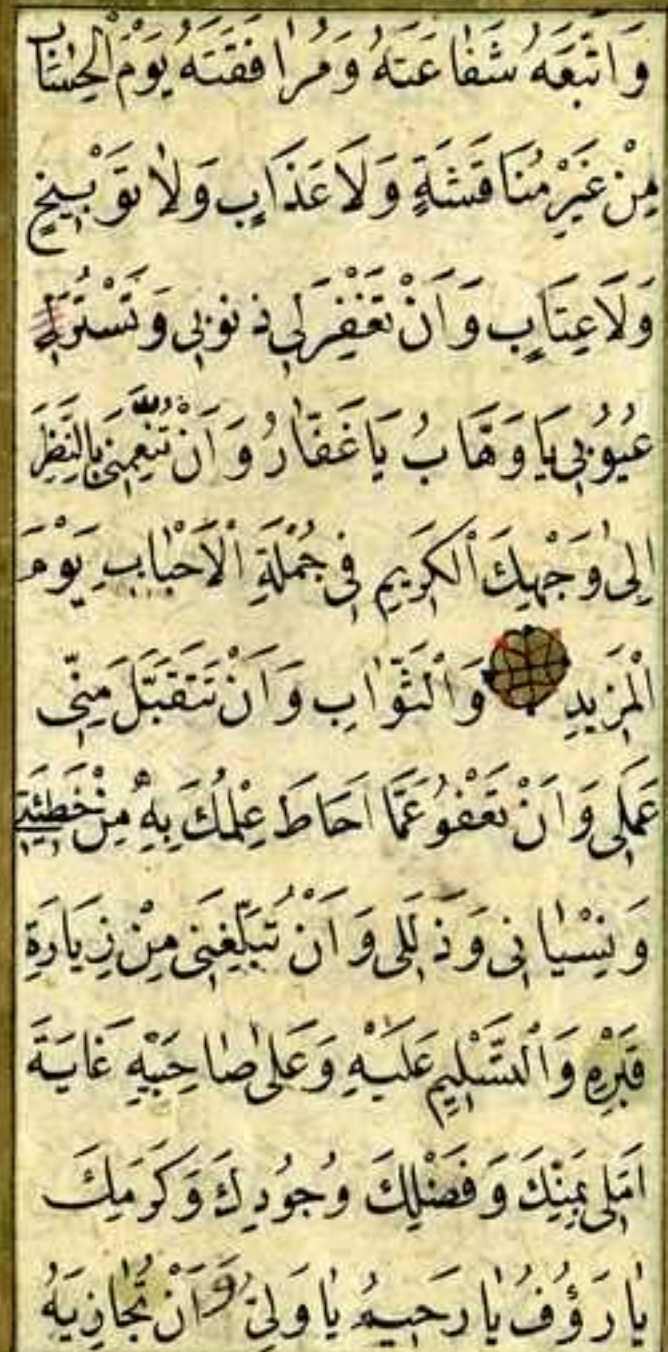 وَاتَّبَعَهُ شَفَاعَتَهُ وَمُرَافَقَتَهُ يَوْمَ الْحِسَابِ
مِنْ غَيْرِ مُنَاقَشَةٍ وَلَا عَذَابٍ وَلَا تَوْبِيخٍ
وَلَا عِتَابٍ وَاَنْ تَغْفِرَلِى ذُنُوبِى وَتَسْتُرَ
عُيُوبِى يَا وَهَّابُ يَا غَفَّارُ وَاَنْ تُنَعِّمَنِى بِالنَّظَرِ
اِلٰى وَجْهِكَ الْكَرِيمِ فِى جُمْلَةِ الْاَحْبَابِ يَوْمَ
الْمَزِيدِ وَالثَّوَابِ وَاَنْ تَتَقَبَّلَ مِنِّى
عَمَلِى وَاَنْ تَعْفُوَ عَمَّا اَحَاطَ عِلْمُكَ بِهِ مِنْ خَطِيئَتِى
وَنِسْيَانِى وَذَلَلِى وَاَنْ تُبَلِّغَنِى مِنْ زِيَارَةِ
قَبْرِهِ وَالتَّسْلِيمِ عَلَيْهِ وَعَلٰى صَاحِبَيْهِ غَايَةَ
اَمَلِى بِمَنِّكَ وَفَضْلِكَ وَجُودِكَ وَكَرَمِكَ
يَا رَؤُفُ يَا رَحِيمُ يَا وَلِىُّ وَاَنْ تُجَازِيَهُ